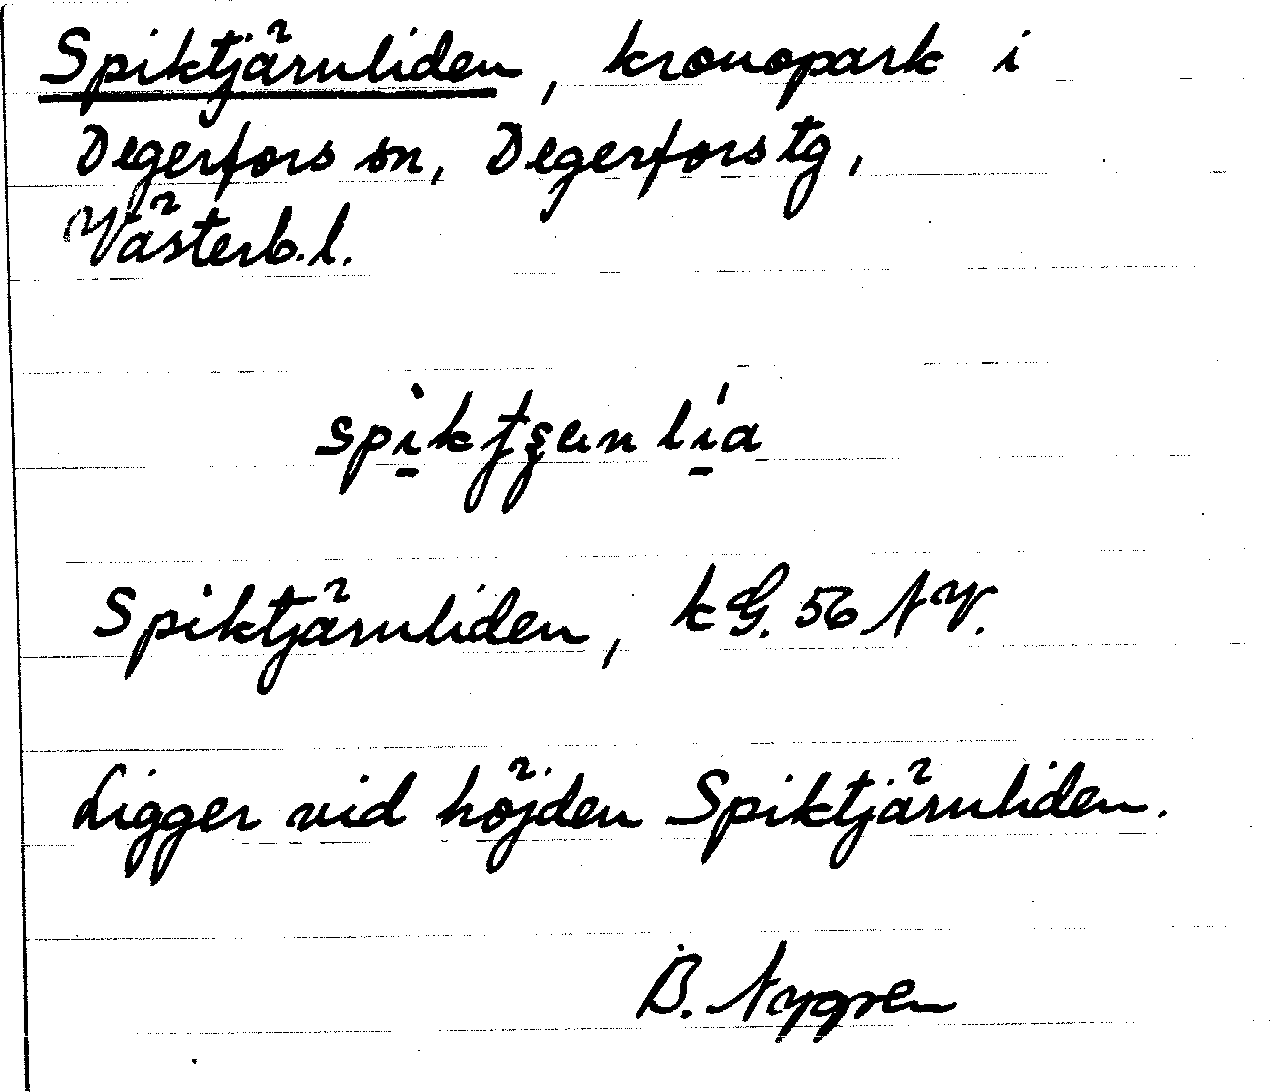 Spiktjärnliden, kronopark i
Degerfors sn, Degerfors tg,
Västerb. l.
Spiktjärnliden, kG. 56 NV.
Ligger vid höjden Spiktjärnliden.
B. Nygren